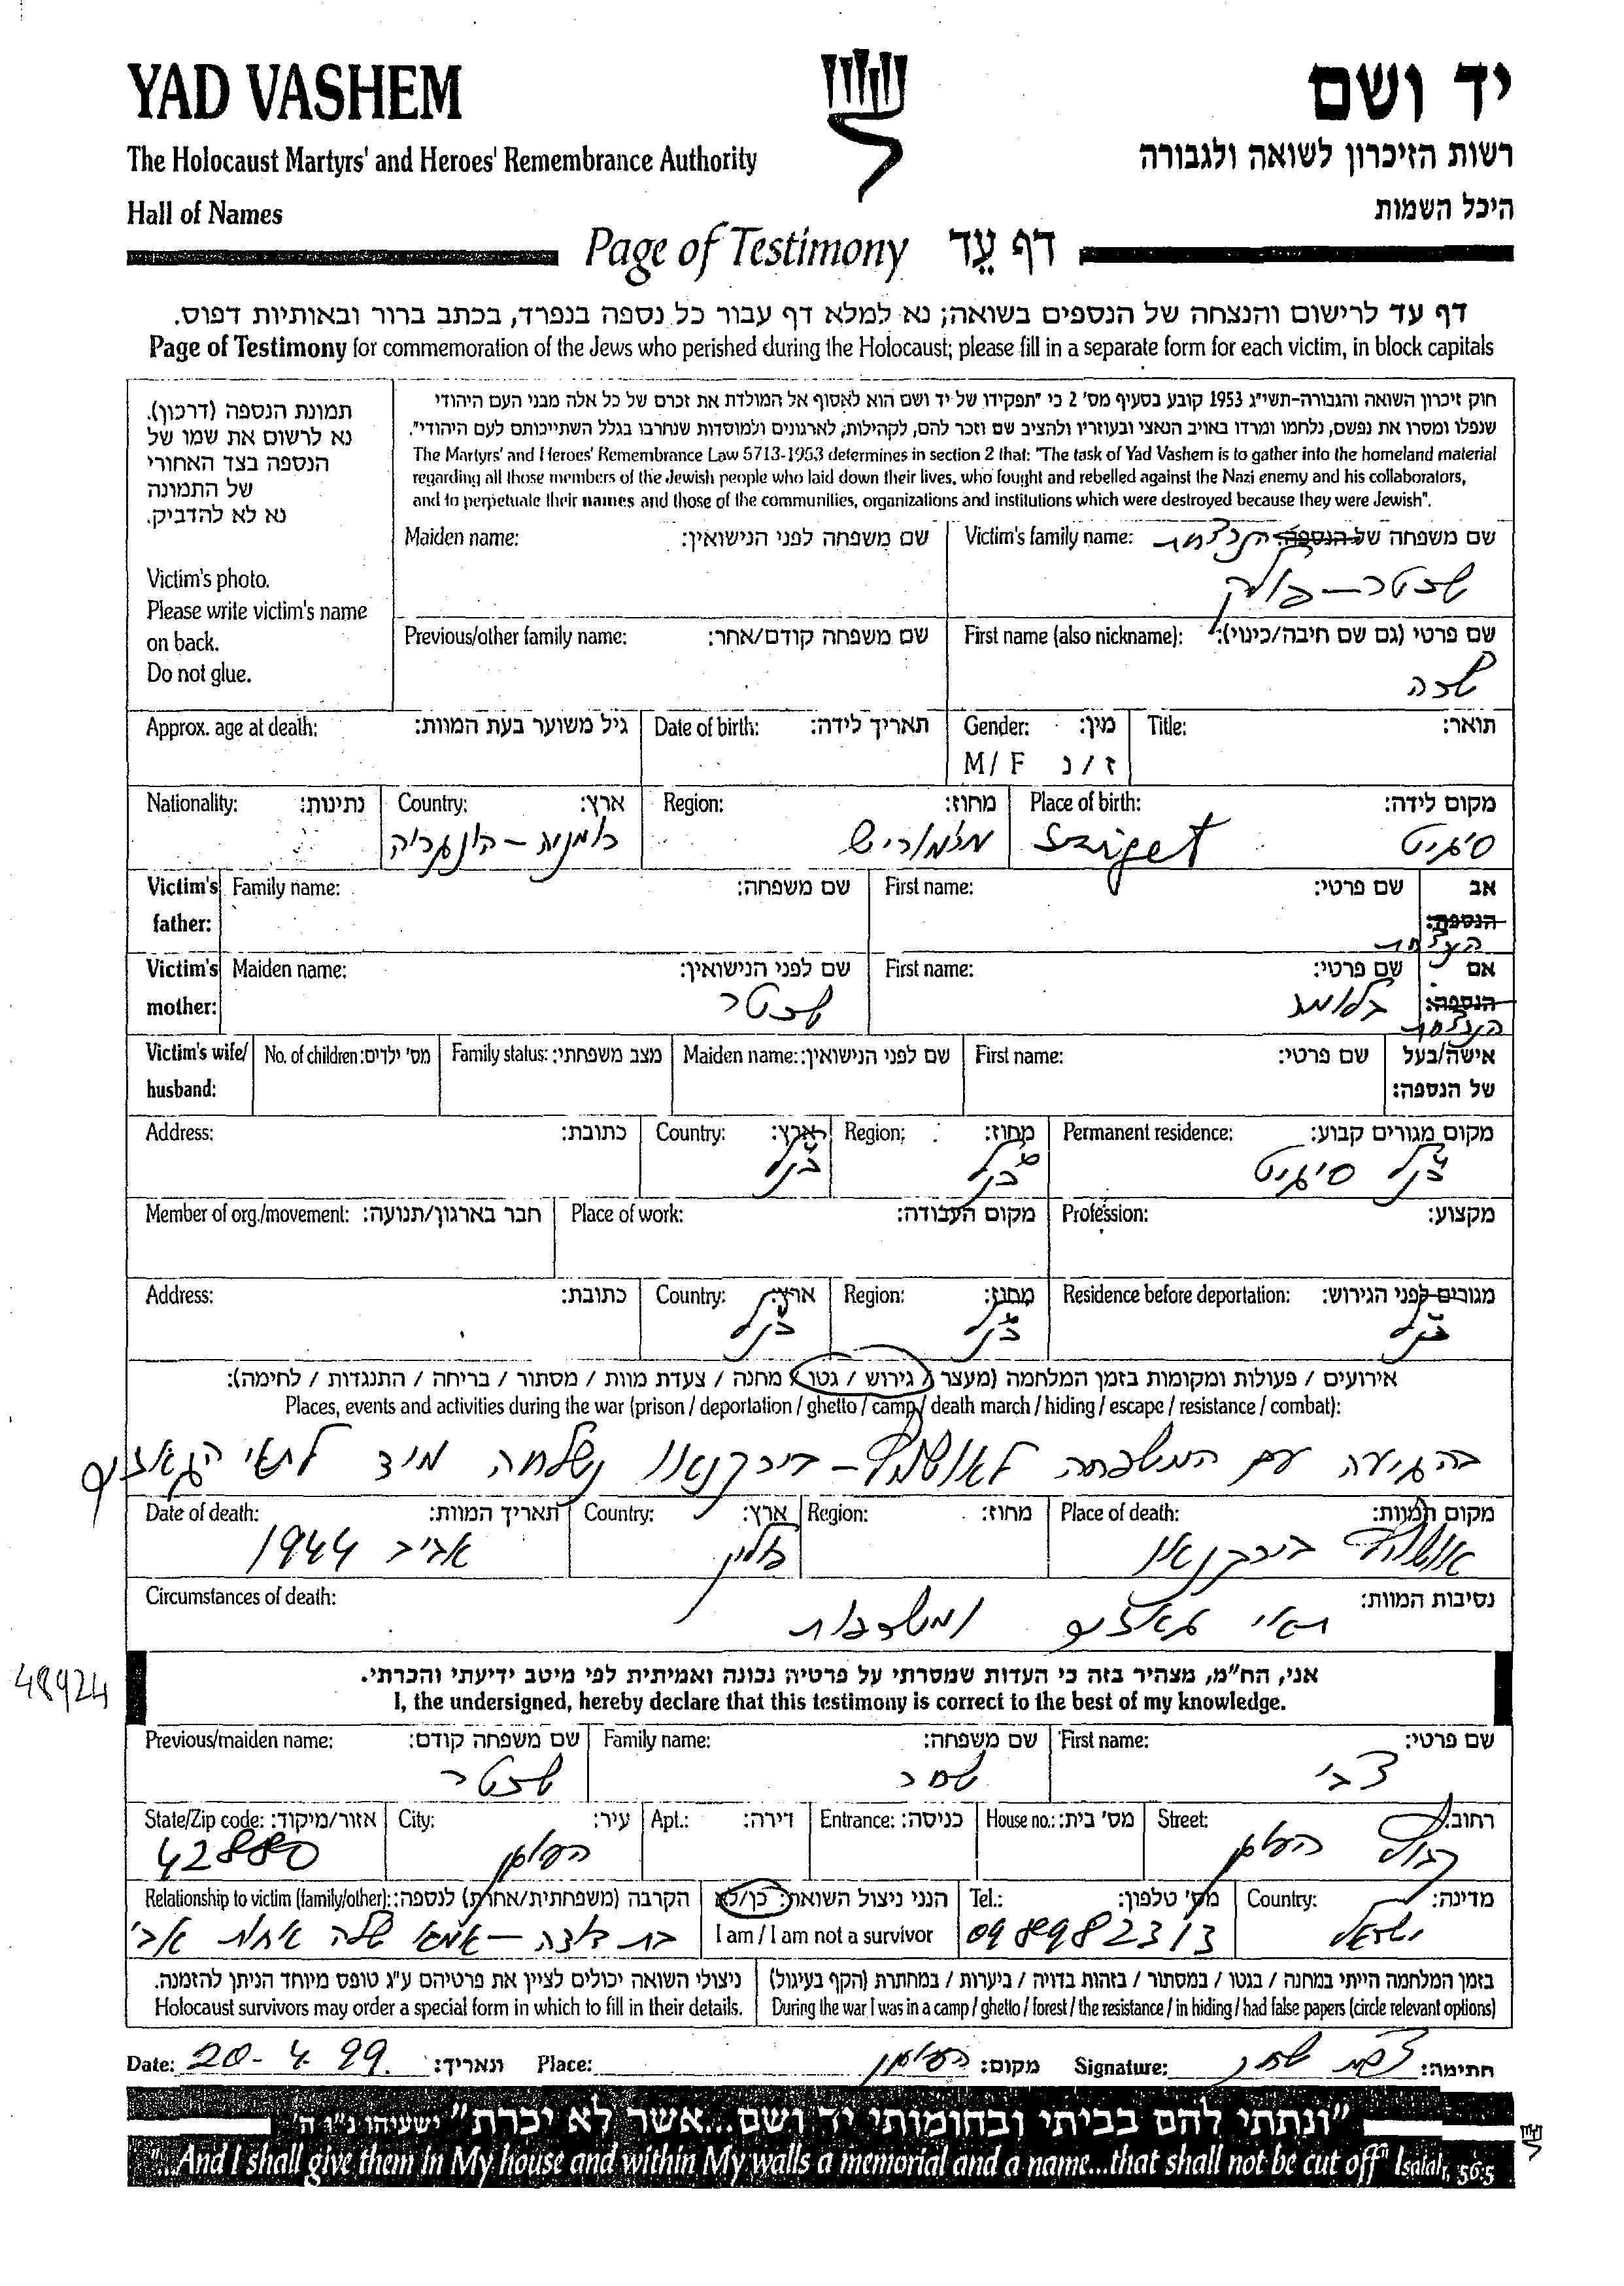 YAD VASHEM
יד ושם
The Holocaust Martyrs' and Heroes' Remembrance Authority
רשות הזיכרון לשואה ולגבורה
Hall of Names
היכל השמות
Page of Testimony דף עֵד
דף עד לרישום והנצחה של הנספים בשואה; נא למלא דף עבור כל נספה בנפרד, בכתב ברור ובאותיות דפוס.
Page of Testimony for commemoration of the Jews who perished during the Holocaust; please fill in a separate form for each victim, in block capitals
תמונת הנספה (דרכון).
נא לרשום את שמו של
הנספה בצד האחורי
של התמונה
נא לא להדביק.
Victim's photo.
Please write victim's name
on back.
Do not glue.
חוק זיכרון השואה והגבורה-תשי"ג 1953 קובע בסעיף מס' 2 כי "תפקידו של יד ושם הוא לאסוף אל המולדת את זכרם של כל אלה מבני העם היהודי
שנפלו ומסרו את נפשם, נלחמו ומרדו באויב הנאצי ובעוזריו ולהציב שם וזכר להם, לקהילות, לארגונים ולמוסדות שנחרבו בגלל השתייכותם לעם היהודי".
The Martyrs' and Heroes' Remembrance Law 5713-1953 determines in section 2 that: "The task of Yad Vashem is to gather into the homeland material
regarding all those members of the Jewish people who laid down their lives, who fought and rebelled against the Nazi enemy and his collaborators,
and to perpetuate their names and those of the communities, organizations and institutions which were destroyed because they were Jewish".
שם משפחה של הנספה: הנרצחת Victim's family name:
שם משפחה לפני הנישואין: Maiden name:
שכטר-פולק
שם פרטי (גם שם חיבה/כינוי): First name (also nickname):
שם משפחה קודם/אחר: Previous/other family name:
תואר: Title: מין: Gender: תאריך לידה: Date of birth: גיל משוער בעת המוות: Approx. age at death:
ז / נ M / F
מקום לידה: Place of birth: מחוז: Region: ארץ: Country: נתינות: Nationality:
סיגט Sziget מרמוריש רומניה-הונגריה
אב הנספה: שם פרטי: First name: שם משפחה: Family name: Victim's father:
הנרצחת
אם הנספה: שם פרטי: First name: שם לפני הנישואין: Maiden name: Victim's mother:
הנרצחת בלומה שכטר
אישה/בעל של הנספה: שם פרטי: First name: שם לפני הנישואין: Maiden name: מצב משפחתי: Family status: מס' ילדים: No. of children: Victim's wife/ husband:
מקום מגורים קבוע: Permanent residence: מחוז: Region: ארץ: Country: כתובת: Address:
כנ"ל סיגט כנ"ל כנ"ל
מקצוע: Profession: מקום העבודה: Place of work: חבר בארגון/תנועה: Member of org./movement:
מגורים לפני הגירוש: Residence before deportation: מחוז: Region: ארץ: Country: כתובת: Address:
כנ"ל כנ"ל כנ"ל
אירועים / פעולות ומקומות בזמן המלחמה (מעצר / גירוש / גטו / מחנה / צעדת מוות / מסתור / בריחה / התנגדות / לחימה):
Places, events and activities during the war (prison / deportation / ghetto / camp / death march / hiding / escape / resistance / combat):
בהגיעה עם המשפחה לאושוויץ-בירקנאו נשלחה מיד לתאי הגאזים
מקום המוות: Place of death: מחוז: Region: ארץ: Country: תאריך המוות: Date of death:
אושוויץ בירקנאו פולין אביב 1944
נסיבות המוות: Circumstances of death:
תאי גאזים ומשרפות
48924
אני, הח"מ, מצהיר בזה כי העדות שמסרתי על פרטיה נכונה ואמיתית לפי מיטב ידיעתי והכרתי.
I, the undersigned, hereby declare that this testimony is correct to the best of my knowledge.
שם פרטי: First name: שם משפחה: Family name: שם משפחה קודם: Previous/maiden name:
צבי שחר שכטר
רחוב: Street: מס' בית: House no.: כניסה: Entrance: דירה: Apt.: עיר: City: אזור/מיקוד: State/Zip code:
העוגן העוגן 42880
מדינה: Country: מס' טלפון: Tel.: הנני ניצול השואה: כן/לא הקרבה (משפחתית/אחרת) לנספה: Relationship to victim (family/other):
I am / I am not a survivor
ישראל 09 8982313 בת דודה - אמא שלה אחות אבי
בזמן המלחמה הייתי במחנה / בגטו / במסתור / בזהות בדויה / ביערות / במחתרת (הקף בעיגול)
ניצולי השואה יכולים לציין את פרטיהם ע"ג טופס מיוחד הניתן להזמנה.
During the war I was in a camp / ghetto / forest / the resistance / in hiding / had false papers (circle relevant options)
Holocaust survivors may order a special form in which to fill in their details.
חתימה: Signature: מקום: העוגן Place: תאריך: 20-4.99. Date:
"ונתתי להם בביתי ובחומותי יד ושם...אשר לא יכרת" ישעיהו נ"ו ה'
"...And I shall give them in My house and within My walls a memorial and a name...that shall not be cut off" Isaiah, 56:5